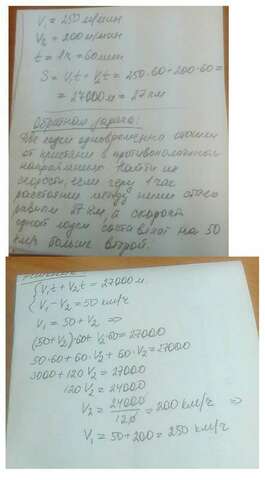 V₁ = 250 м/мин
V₂ = 200 м/мин
t = 1ч = 60 мин
S = V₁t + V₂t = 250·60 + 200·60 =
= 27000 м = 27 км
Обратная задача:
Две лодки одновременно отошли
от пристани в противоположном
направлении. Найти их
скорости, если через 1 час
расстояние между ними стало
равным 27 км, а скорость
одной лодки на 50
больше второй.
{V₁t + V₂t = 27000 м
{V₁ - V₂ = 50 км/ч
V₁ = 50 + V₂ ⇒
(50+V₂)·60 + V₂·60 = 27000
50·60 + 60·V₂ + 60·V₂ = 27000
3000 + 120V₂ = 27000
120V₂ = 24000
V₂ = 24000/120 = 200 км/ч ⇒
V₁ = 50 + 200 = 250 км/ч